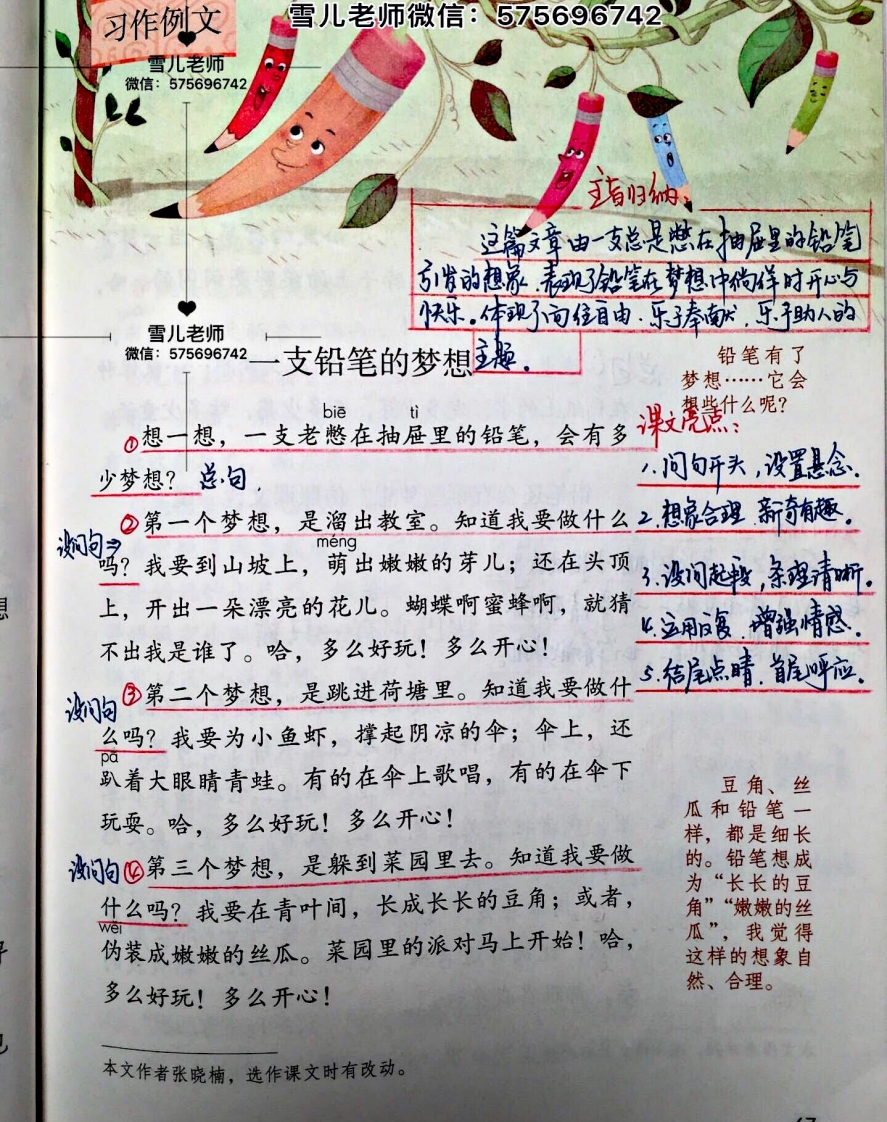 雪儿老师微信：575696742
习作例文
雪儿老师
微信：575696742
主旨归纳
这篇文章由一支总是憋在抽屉里的铅笔
引发的想象，表现了铅笔在梦想中徜徉时开心与
快乐。体现了向往自由、乐于奉献、乐于助人的
主题。
雪儿老师
微信：575696742
一支铅笔的梦想
铅笔有了
梦想……它会
想些什么呢？
biē tì
①想一想，一支老憋在抽屉里的铅笔，会有多
少梦想？ 总句.
②第一个梦想，是溜出教室。知道我要做什么
设问句⇒
méng
吗？我要到山坡上，萌出嫩嫩的芽儿；还在头顶
上，开出一朵漂亮的花儿。蝴蝶啊蜜蜂啊，就猜
不出我是谁了。哈，多么好玩！多么开心！
③第二个梦想，是跳进荷塘里。知道我要做什
设问句
么吗？我要为小鱼虾，撑起阴凉的伞；伞上，还
pā
趴着大眼睛青蛙。有的在伞上歌唱，有的在伞下
玩耍。哈，多么好玩！多么开心！
设问句④第三个梦想，是躲到菜园里去。知道我要做
什么吗？我要在青叶间，长成长长的豆角；或者，
wěi
伪装成嫩嫩的丝瓜。菜园里的派对马上开始！哈，
多么好玩！多么开心！
课文亮点：
1.问句开头，设置悬念。
2.想象合理，新奇有趣。
3.设问起段，条理清晰。
4.运用反复，增强情感。
5.结尾点睛，首尾呼应。
豆角、丝
瓜和铅笔一
样，都是细长
的。铅笔想成
为“长长的豆
角”“嫩嫩的丝
瓜”，我觉得
这样的想象自
然、合理。
本文作者张晓楠，选作课文时有改动。